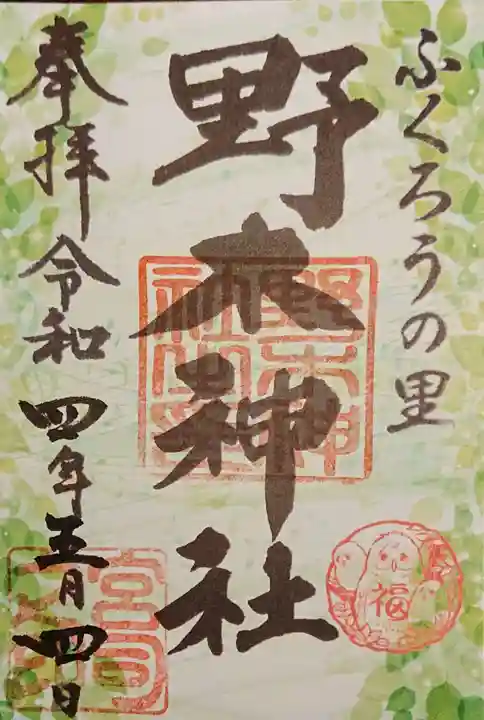 ふくろうの里
野木神社
野木神社之印
福
奉拝 令和四年五月四日